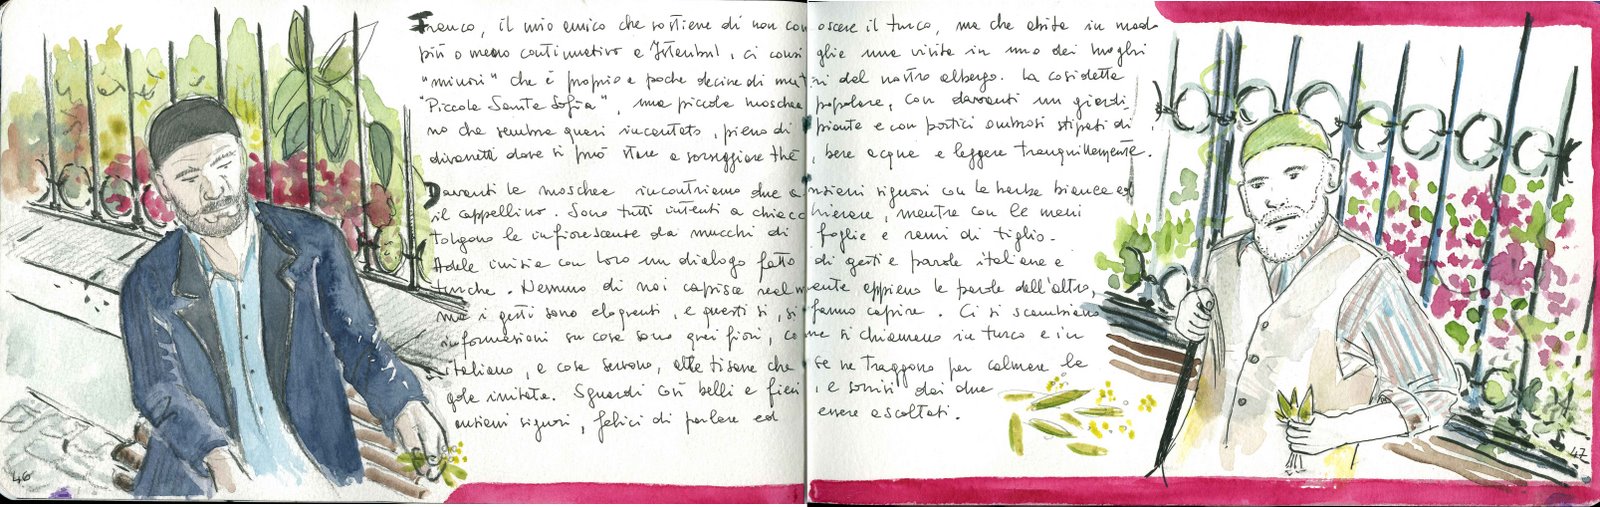 Franco, il mio amico che sostiene di non conoscere il turco, ma che abita in modo
più o meno continuativo a Istanbul, ci consiglie una visita in uno dei luoghi
"minori" che è proprio a poche decine di metri del nostro albergo. La cosidetta
"Piccola Santa Sofia", una piccola moschea popolare, con davanti un giardi
no che sembra quasi incantato, pieno di piante e con portici ombrosi stipati di
divanetti dove si può stare a sorseggiare thè, bere acqua e leggere tranquillamente.
Davanti la moschea incontriamo due anziani signori con la barba bianca ed
il cappellino. Sono tutti intenti a chiacchierare, mentre con le mani
tolgono le infiorescenze da mucchi di foglie e rami di tiglio.
Adele inizia con loro un dialogo fatto di gesti e parole italiane e
turche. Nessuno di noi capisce realmente appieno le parole dell'altro,
ma i gesti sono eloquenti, e questi sì, si fanno capire. Ci si scambiano
informazioni su cosa sono quei fiori, come si chiamano in turco e in
italiano, a cosa servono, alle tisane che se ne traggono per calmare la
gola irritata. Sguardi così belli e fieri, e sorrisi dai due
anziani signori, felici di parlare ed essere ascoltati.
46
47